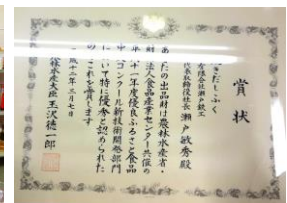 賞状
だし・ふく
有限会社瀬戸鉄工
代表取締役社長 瀬戸敏秀殿
あなたの出品財は農林水産省・
財団法人食品産業センター共催の
平成十一年度優良ふるさと食品
中央コンクール新技術開発部門
において特に優秀と認められた
のでこれを賞します
平成十二年三月七日
農林水産大臣 玉沢徳一郎